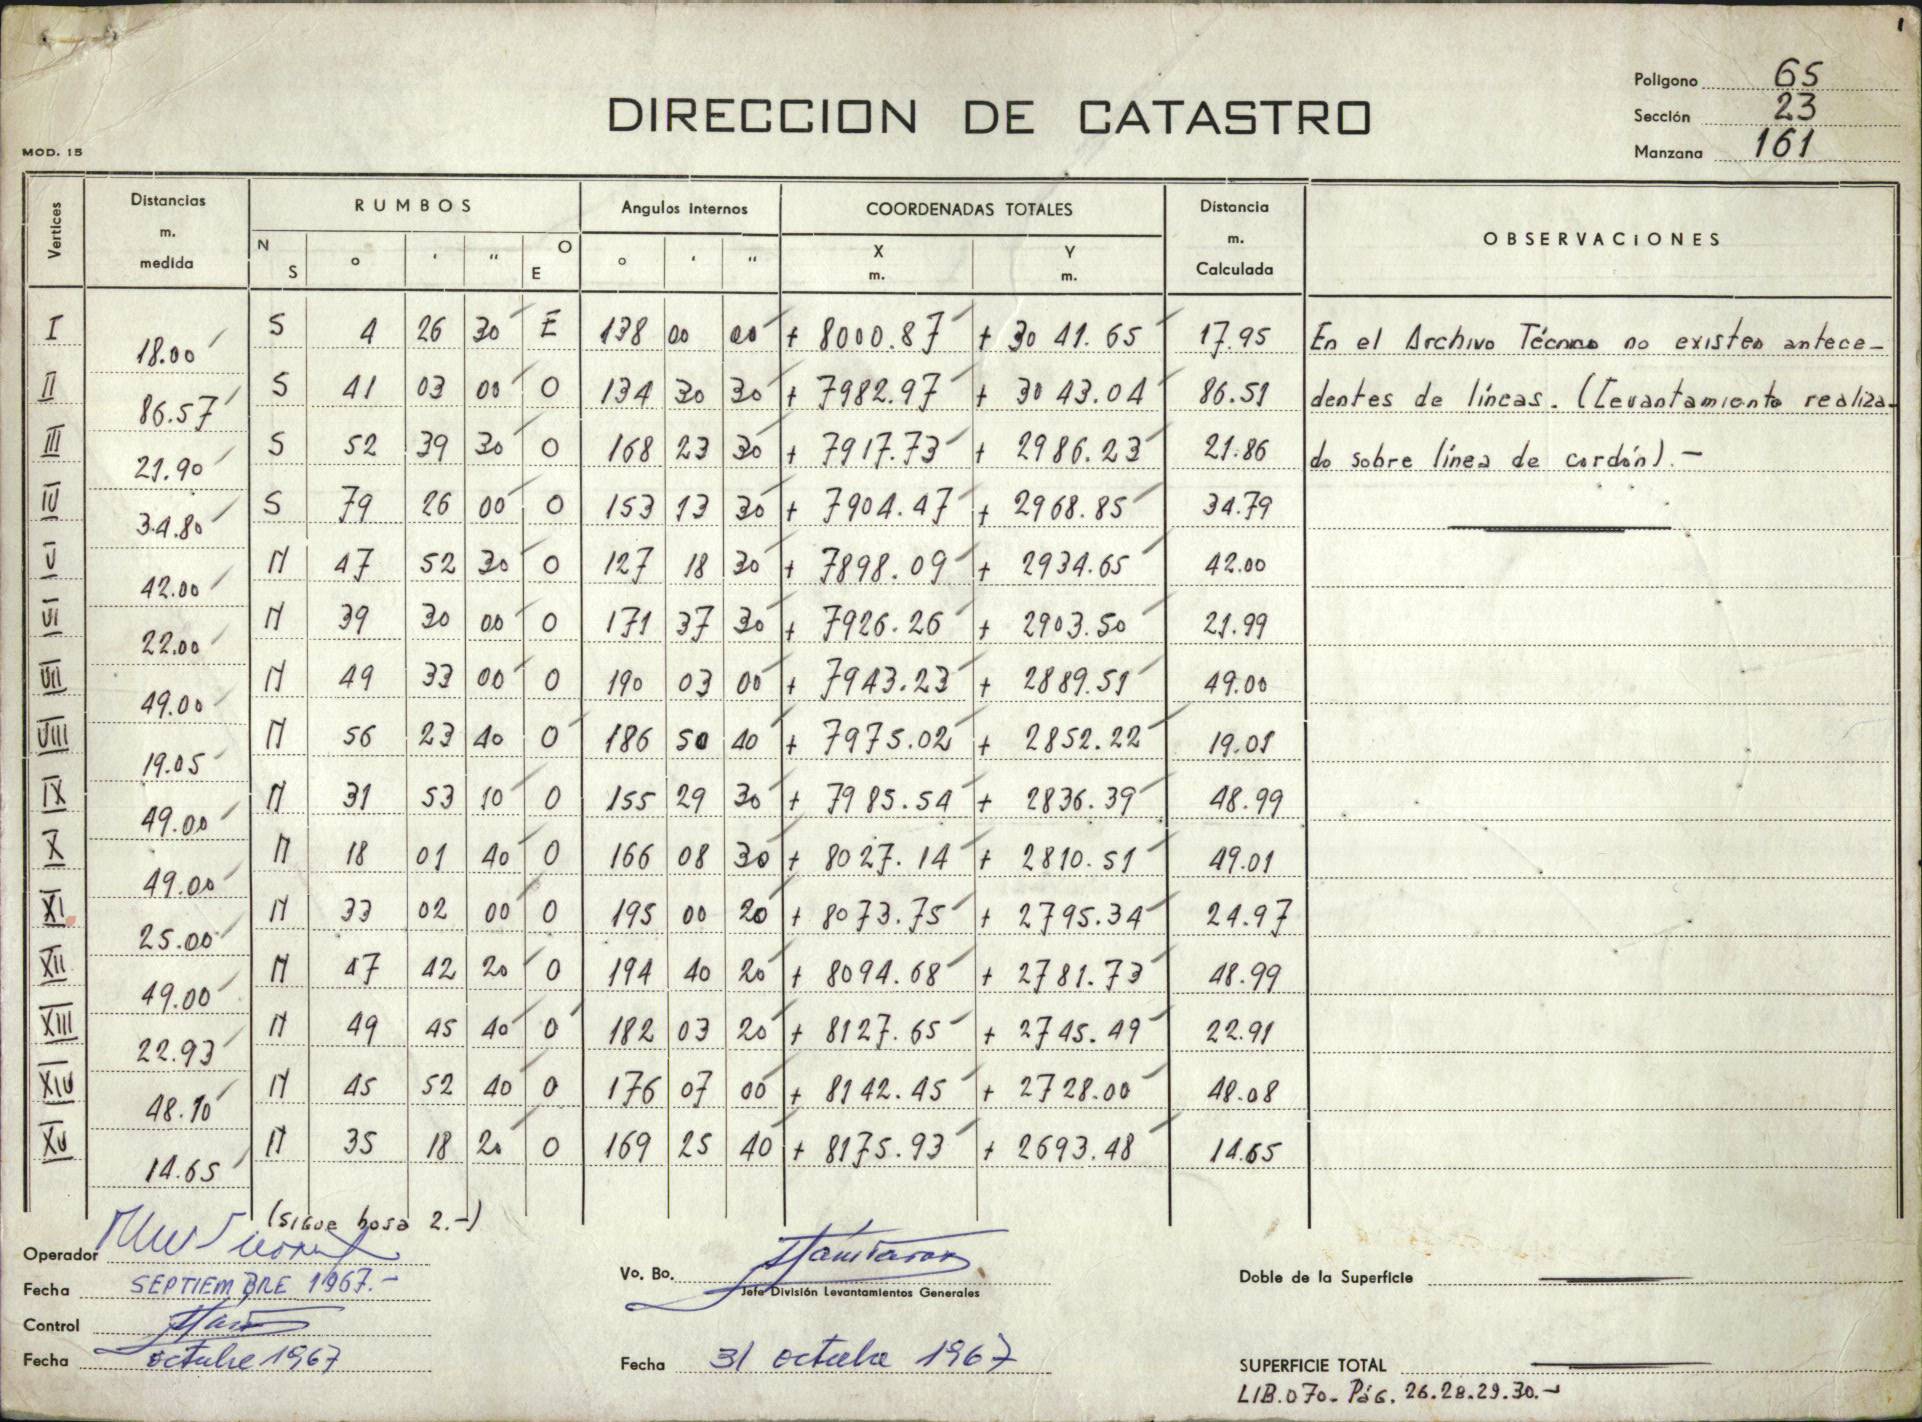 1
Polígono 65
Sección 23
Manzana 161
DIRECCION DE CATASTRO
MOD. 15
Vertices | Distancias m. medida | RUMBOS N S ° ' " O E | Angulos internos ° ' " | COORDENADAS TOTALES X m. Y m. | Distancia m. Calculada | OBSERVACIONES
I 18.00 S 4 26 30 E 138 00 00 + 8000.87 + 3041.65 17.95 En el Archivo Técnico no existen antece-
II 86.57 S 41 03 00 O 134 30 30 + 7982.97 + 3043.04 86.51 dentes de líneas. (Levantamiento realiza-
III 21.90 S 52 39 30 O 168 23 30 + 7917.73 + 2986.23 21.86 do sobre línea de cordón).-
IV 34.80 S 79 26 00 O 153 13 30 + 7904.47 + 2968.85 34.79
V 42.00 N 47 52 30 O 127 18 30 + 7898.09 + 2934.65 42.00
VI 22.00 N 39 30 00 O 171 37 30 + 7926.26 + 2903.50 21.99
VII 49.00 N 49 33 00 O 190 03 00 + 7943.23 + 2889.51 49.00
VIII 19.05 N 56 23 40 O 186 50 40 + 7975.02 + 2852.22 19.01
IX 49.00 N 31 53 10 O 155 29 30 + 7985.54 + 2836.39 48.99
X 49.00 N 18 01 40 O 166 08 30 + 8027.14 + 2810.51 49.01
XI 25.00 N 33 02 00 O 195 00 20 + 8073.75 + 2795.34 24.97
XII 49.00 N 47 42 20 O 194 40 20 + 8094.68 + 2781.73 48.99
XIII 22.93 N 49 45 40 O 182 03 20 + 8127.65 + 2745.49 22.91
XIV 48.10 N 45 52 40 O 176 07 00 + 8142.45 + 2728.00 48.08
XV 14.65 N 35 18 20 O 169 25 40 + 8175.93 + 2693.48 14.65
(sigue hoja 2.-)
Operador
Fecha SEPTIEMBRE 1967.-
Control
Fecha octubre 1967
Vo. Bo.
Jefe División Levantamientos Generales
Fecha 31 octubre 1967
Doble de la Superficie
SUPERFICIE TOTAL
LIB.070- Pág. 26.28.29.30.-